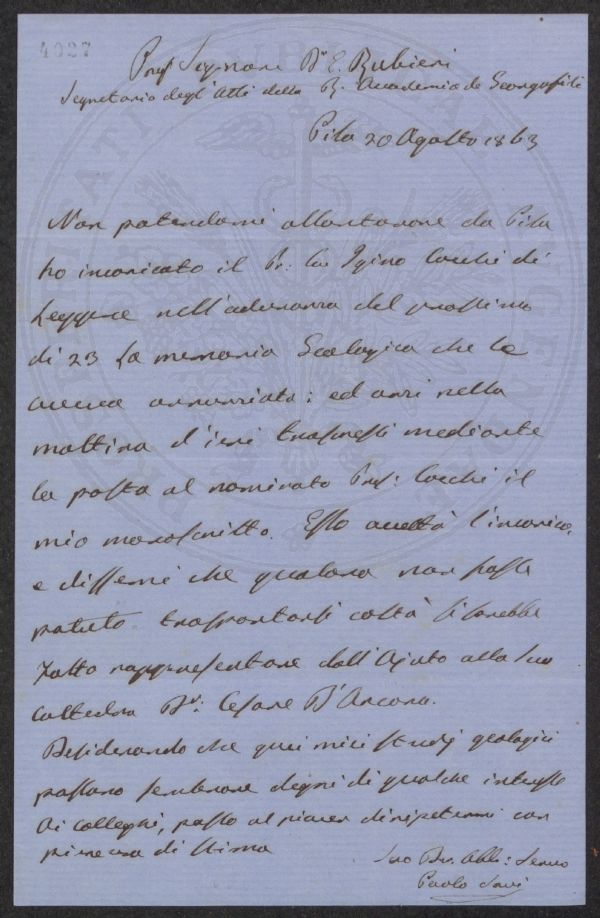 4027
Prof Signore Dr. E. Rubieri
Segretario degl' Atti della R. Accademia de Georgofili
Pisa 20 Agosto 1863
Non potendomi allontanare da Pisa
ho incaricato il Pr: Igino Cocchi di
Leggere nell'adunanza del prossimo
di 23 la memoria Geologica che le
aveva annunziata; ed anzi nella
mattina d'ieri trasmessi mediante
la posta al nominato Prof: Cocchi il
mio manoscritto. Esso accettò l'incarico,
e dissemi che qualora non fosse
potuto trasportarsi costà si sarebbe
fatto rappresentare dall'Ajuto alla sua
cattedra Dr: Cesare D'Ancona.
Desiderando che quei miei studj geologici
possano sembrare degni di qualche interesse
ai colleghi, passo al piacer di ripetermi con
pienezza di stima
Suo Dev. Obb: Servo
Paolo Savi